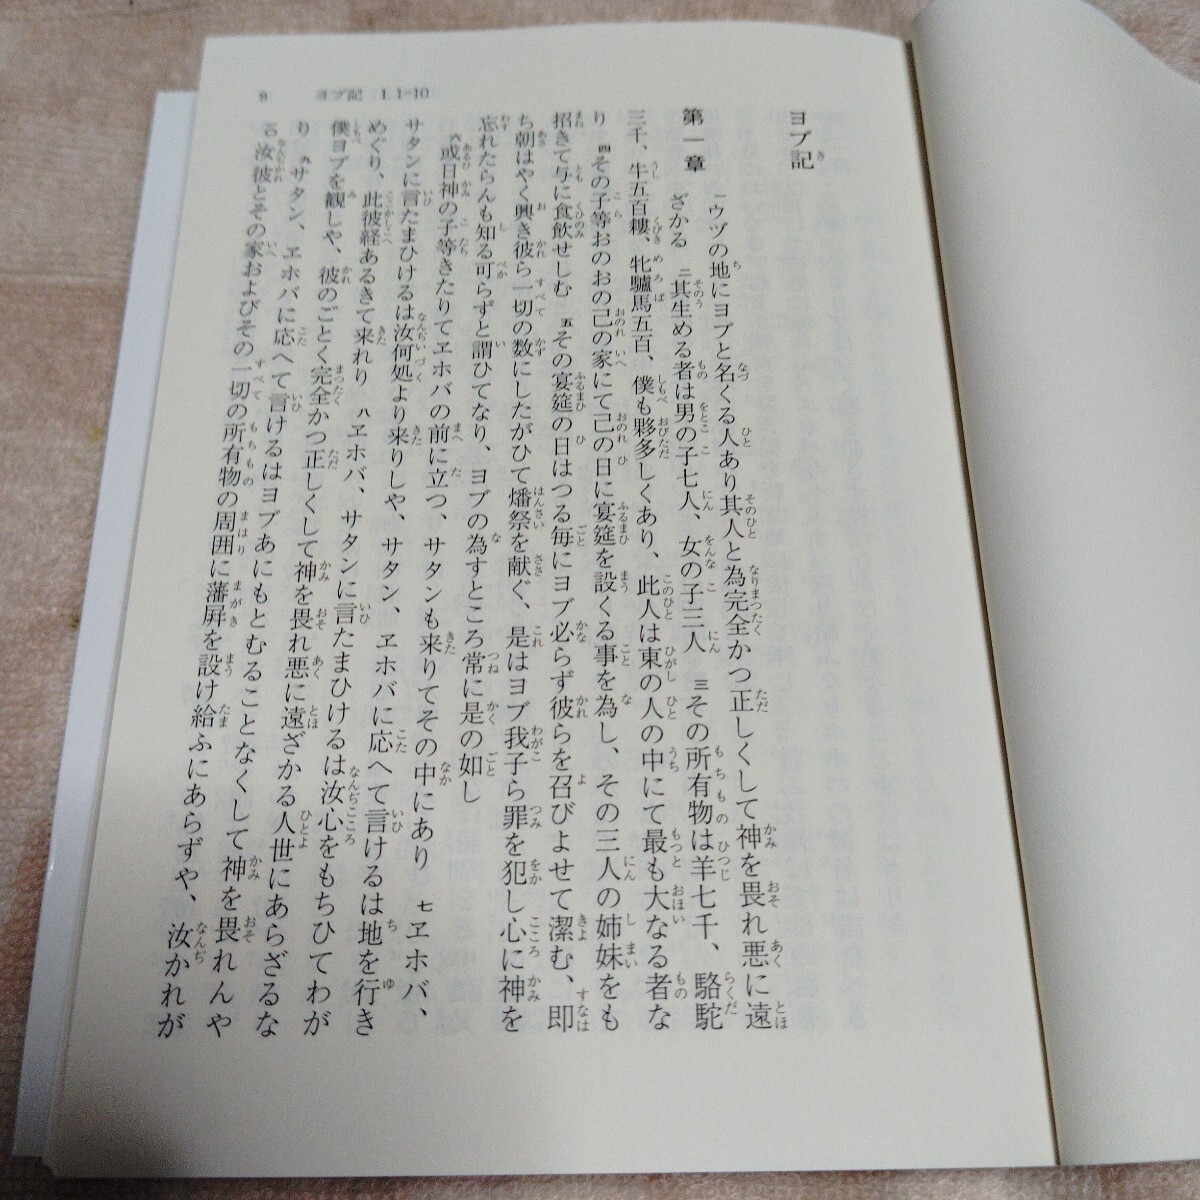 9 ヨブ記 1. 1-10
ヨブ記
第一章
一ウヅの地にヨブと名くる人あり其人と為完全かつ正しくして神を畏れ悪に遠
ざかる 二其生める者は男の子七人、女の子三人 三その所有物は羊七千、駱駝
三千、牛五百耦、牝驢馬五百、僕も夥多しくあり、此人は東の人の中にて最も大なる者な
り 四その子等おのおの己の家にて己の日に宴筵を設くる事を為し、その三人の姉妹をも
招きて与に食飲せしむ 五その宴筵の日はつる毎にヨブ必らず彼らを召びよせて潔む、即
ち朝はやく興き彼ら一切の数にしたがひて燔祭を献ぐ、是はヨブ我子ら罪を犯し心に神を
忘れたらんも知る可らずと謂ひてなり、ヨブの為すところ常に是の如し
六或日神の子等きたりてヱホバの前に立つ、サタンも来りてその中にあり 七ヱホバ、
サタンに言たまひけるは汝何処より来りしや、サタン、ヱホバに応へて言けるは地を行き
めぐり、此彼経あるきて来れり 八ヱホバ、サタンに言たまひけるは汝心をもちひてわが
僕ヨブを観しや、彼のごとく完全かつ正しくして神を畏れ悪に遠ざかる人世にあらざるな
り 九サタン、ヱホバに応へて言けるはヨブあにもとむることなくして神を畏れんや
一〇汝彼とその家およびその一切の所有物の周囲に藩屏を設け給ふにあらずや、汝かれが